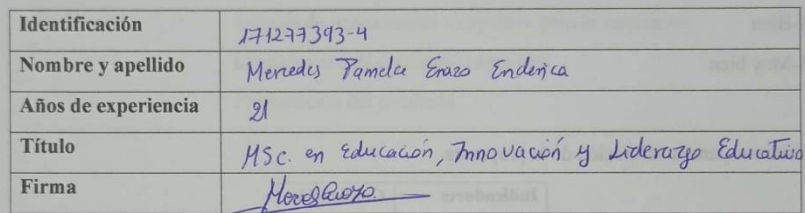 Identificación 171277393-4
Nombre y apellido Mercedes Pamela Erazo Enderica
Años de experiencia 21
Título MSc. en Educación, Innovación y Liderazgo Educativo
Firma
Indicadores